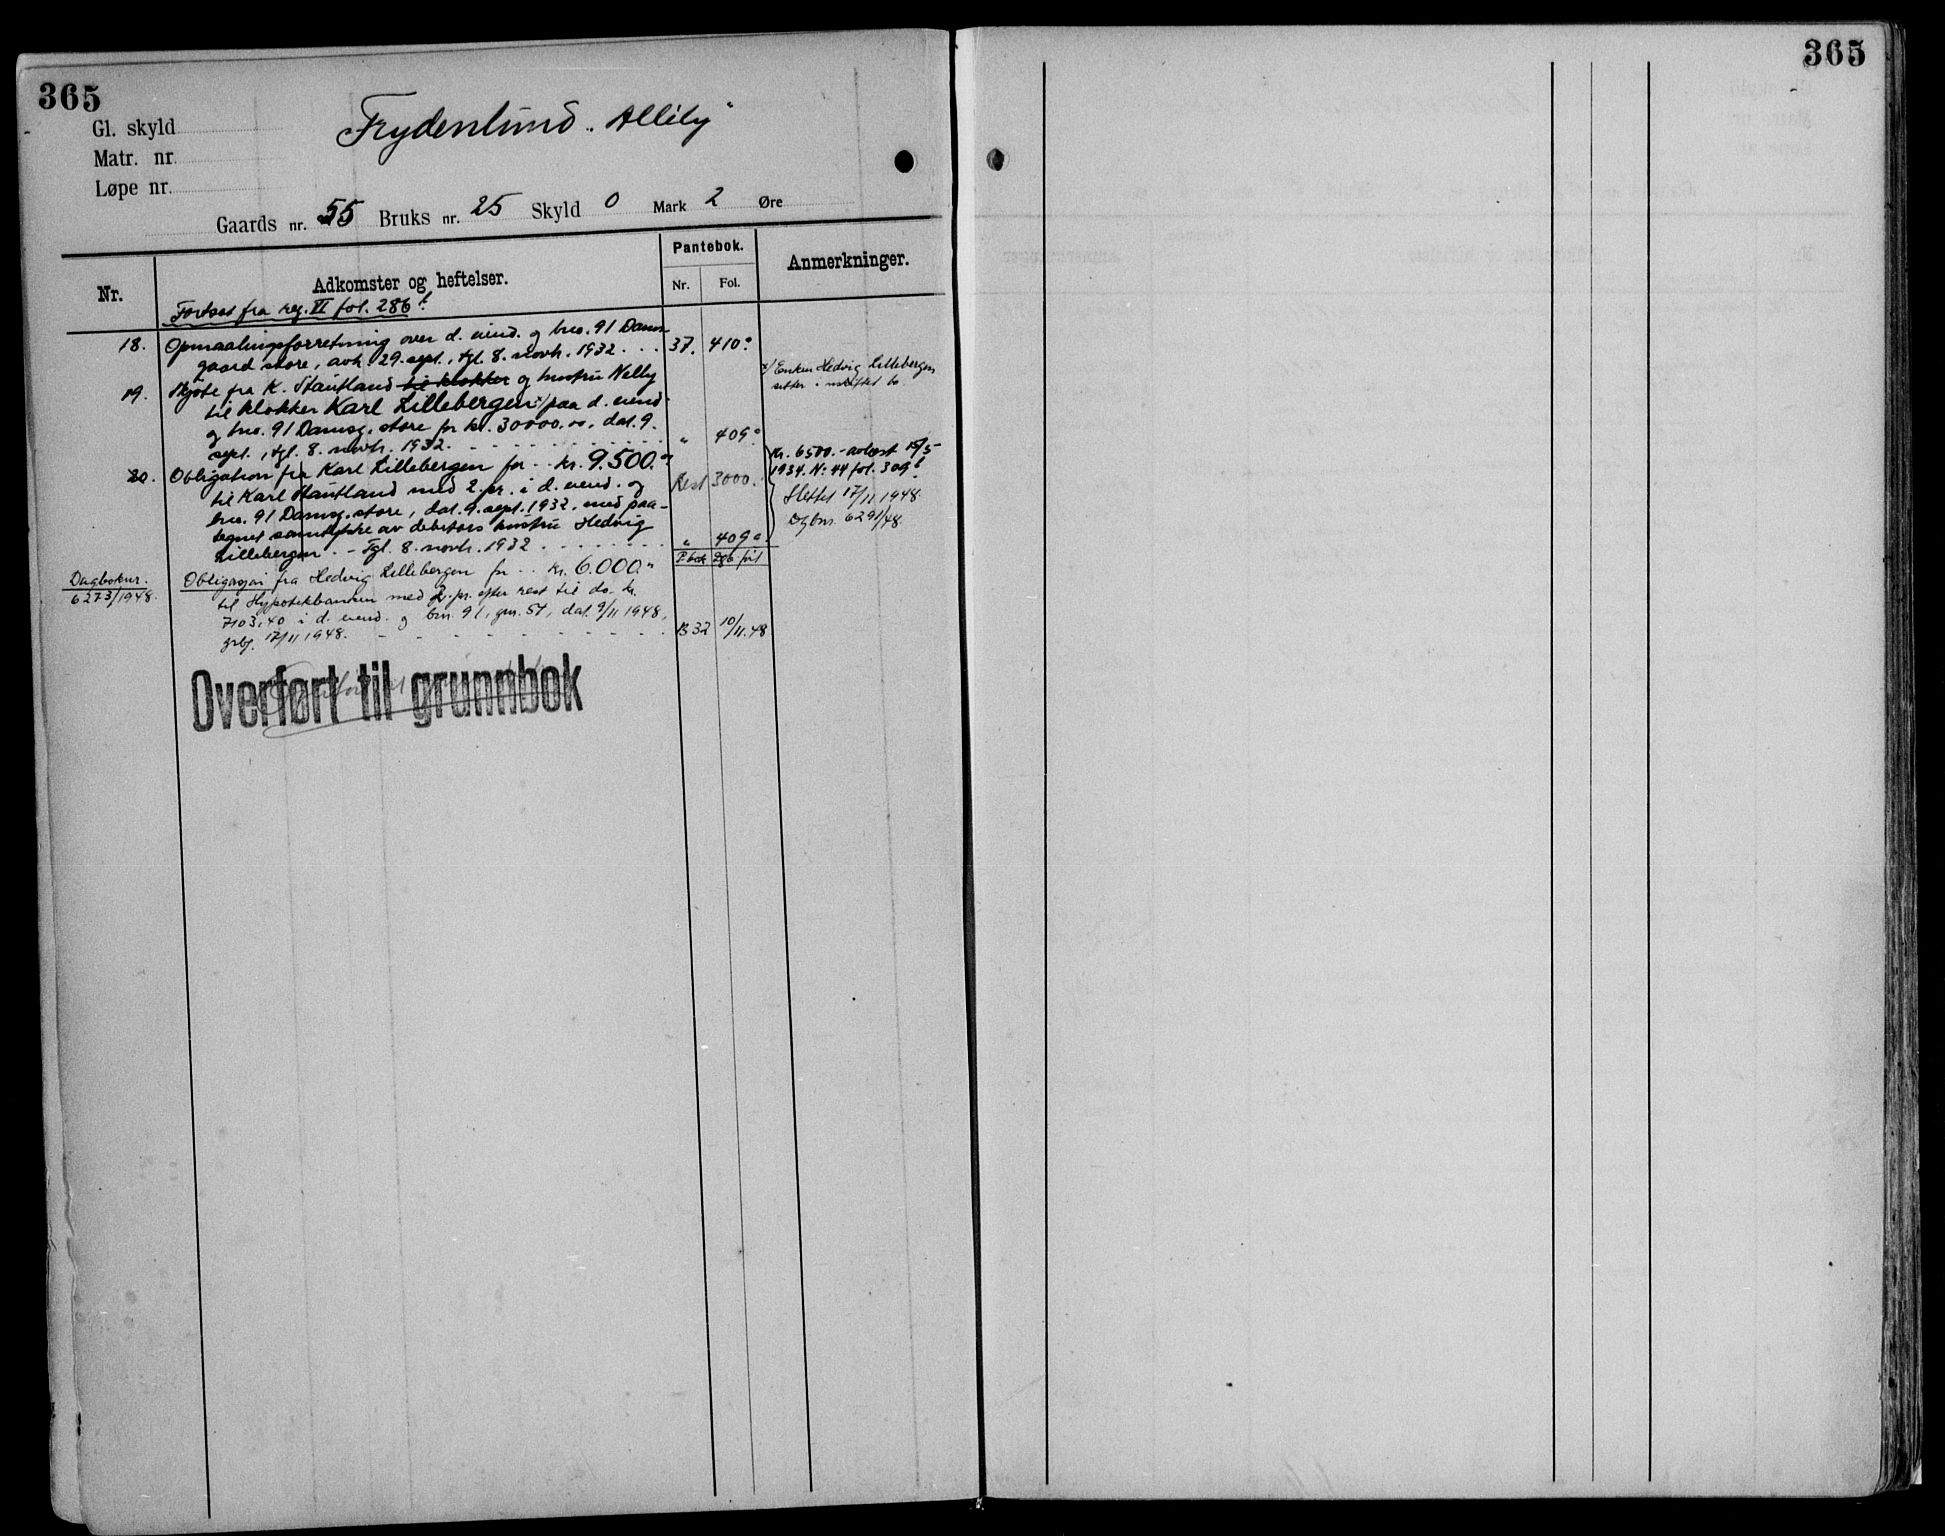 365
Gl. skyld
Matr. nr.
Løpe nr.
Frydenlund „Allily”
Gaards nr. 55 Bruks nr. 25 Skyld 0 Mark 2 Øre
Nr.
Adkomster og heftelser.
Pantebok.
Nr. Fol.
Anmerkninger.
Fortsat fra reg. VI fol. 286 b.
18. Opmaalingsforretning over d. eiend. og bno. 91 Dams-
gaard store, avh. 29. sept., tgl. 8. novh. 1932 . . . 37. 410 a
19. Skjøte fra K. Stautland til klokker og hustru Nelly
til klokker Karl Lillebergen x/ paa d. eiend.
og bno. 91 Damsg. store for kr. 30000.00, dat. 9.
sept., tgl. 8. novh. 1932. „ 409 a
x/ Enken Hedvig Lillebergen
sitter i uskiftet bo.
20. Obligation fra Karl Lillebergen for .. kr. 9.500."
til Karl Stautland med 2. pr. i d. eiend. og Rest 3000.
bno. 91 Damsg. store, dat. 9. sept. 1932, med paa-
tegnet samtykke av debitors hustru Hedvig
Lillebergen. - Tgl. 8. novh. 1932 . . . . „ 409 a
Kr. 6500.- avlæst 15/5-
1934. N: 44 fol. 309 b
Slettet 17/11 1948.
Dgbnr. 6291/48
Dagboknr.
6273/1948.
P.bok Dgb. ført
Obligasjon fra Hedvig Lillebergen for .. kr. 6.000."
til Hypotekbanken med 2. pr. efter rest til do. kr.
7103,40 i d. eiend. og bnr. 91, gnr. 51, dat. 9/11 1948,
grbf. 17/11 1948. B 32 10/11.48
Overført til grunnbok
365